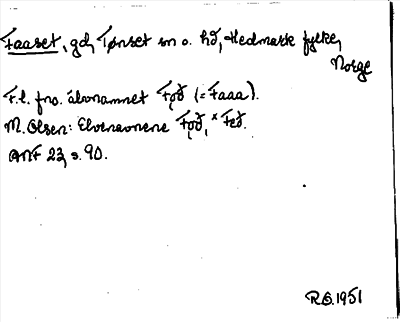 Faaset, gd, Tønset sn o. hd, Hedmark fylke,
Norge
F.l. fno. åbonamnet Fǫð (= Faaa).
M. Olsen: Elvenavnene Fǫð, *Feð.
ANF 23, s. 90.
R.O. 1951